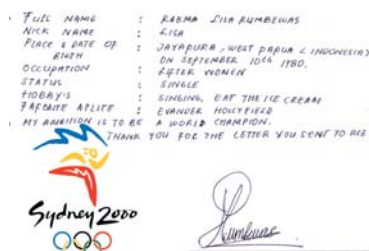 FULL NAME : RAEMA LISA RUMBEWAS
NICK NAME : LISA
PLACE & DATE OF BIRTH : JAYAPURA, WEST PAPUA (INDONESIA)
ON SEPTEMBER 10th 1980.
OCCUPATION : LIFTER WOMEN
STATUS : SINGLE
HOBBY'S : SINGING, EAT THE ICE CREAM
FAFORITE ATLITE : EVANDER HOLYFIELD
MY AMBITION IS TO BE A WORLD CHAMPION.
THANK YOU FOR THE LETTER YOU SENT TO ME
Sydney 2000
Rumbewas